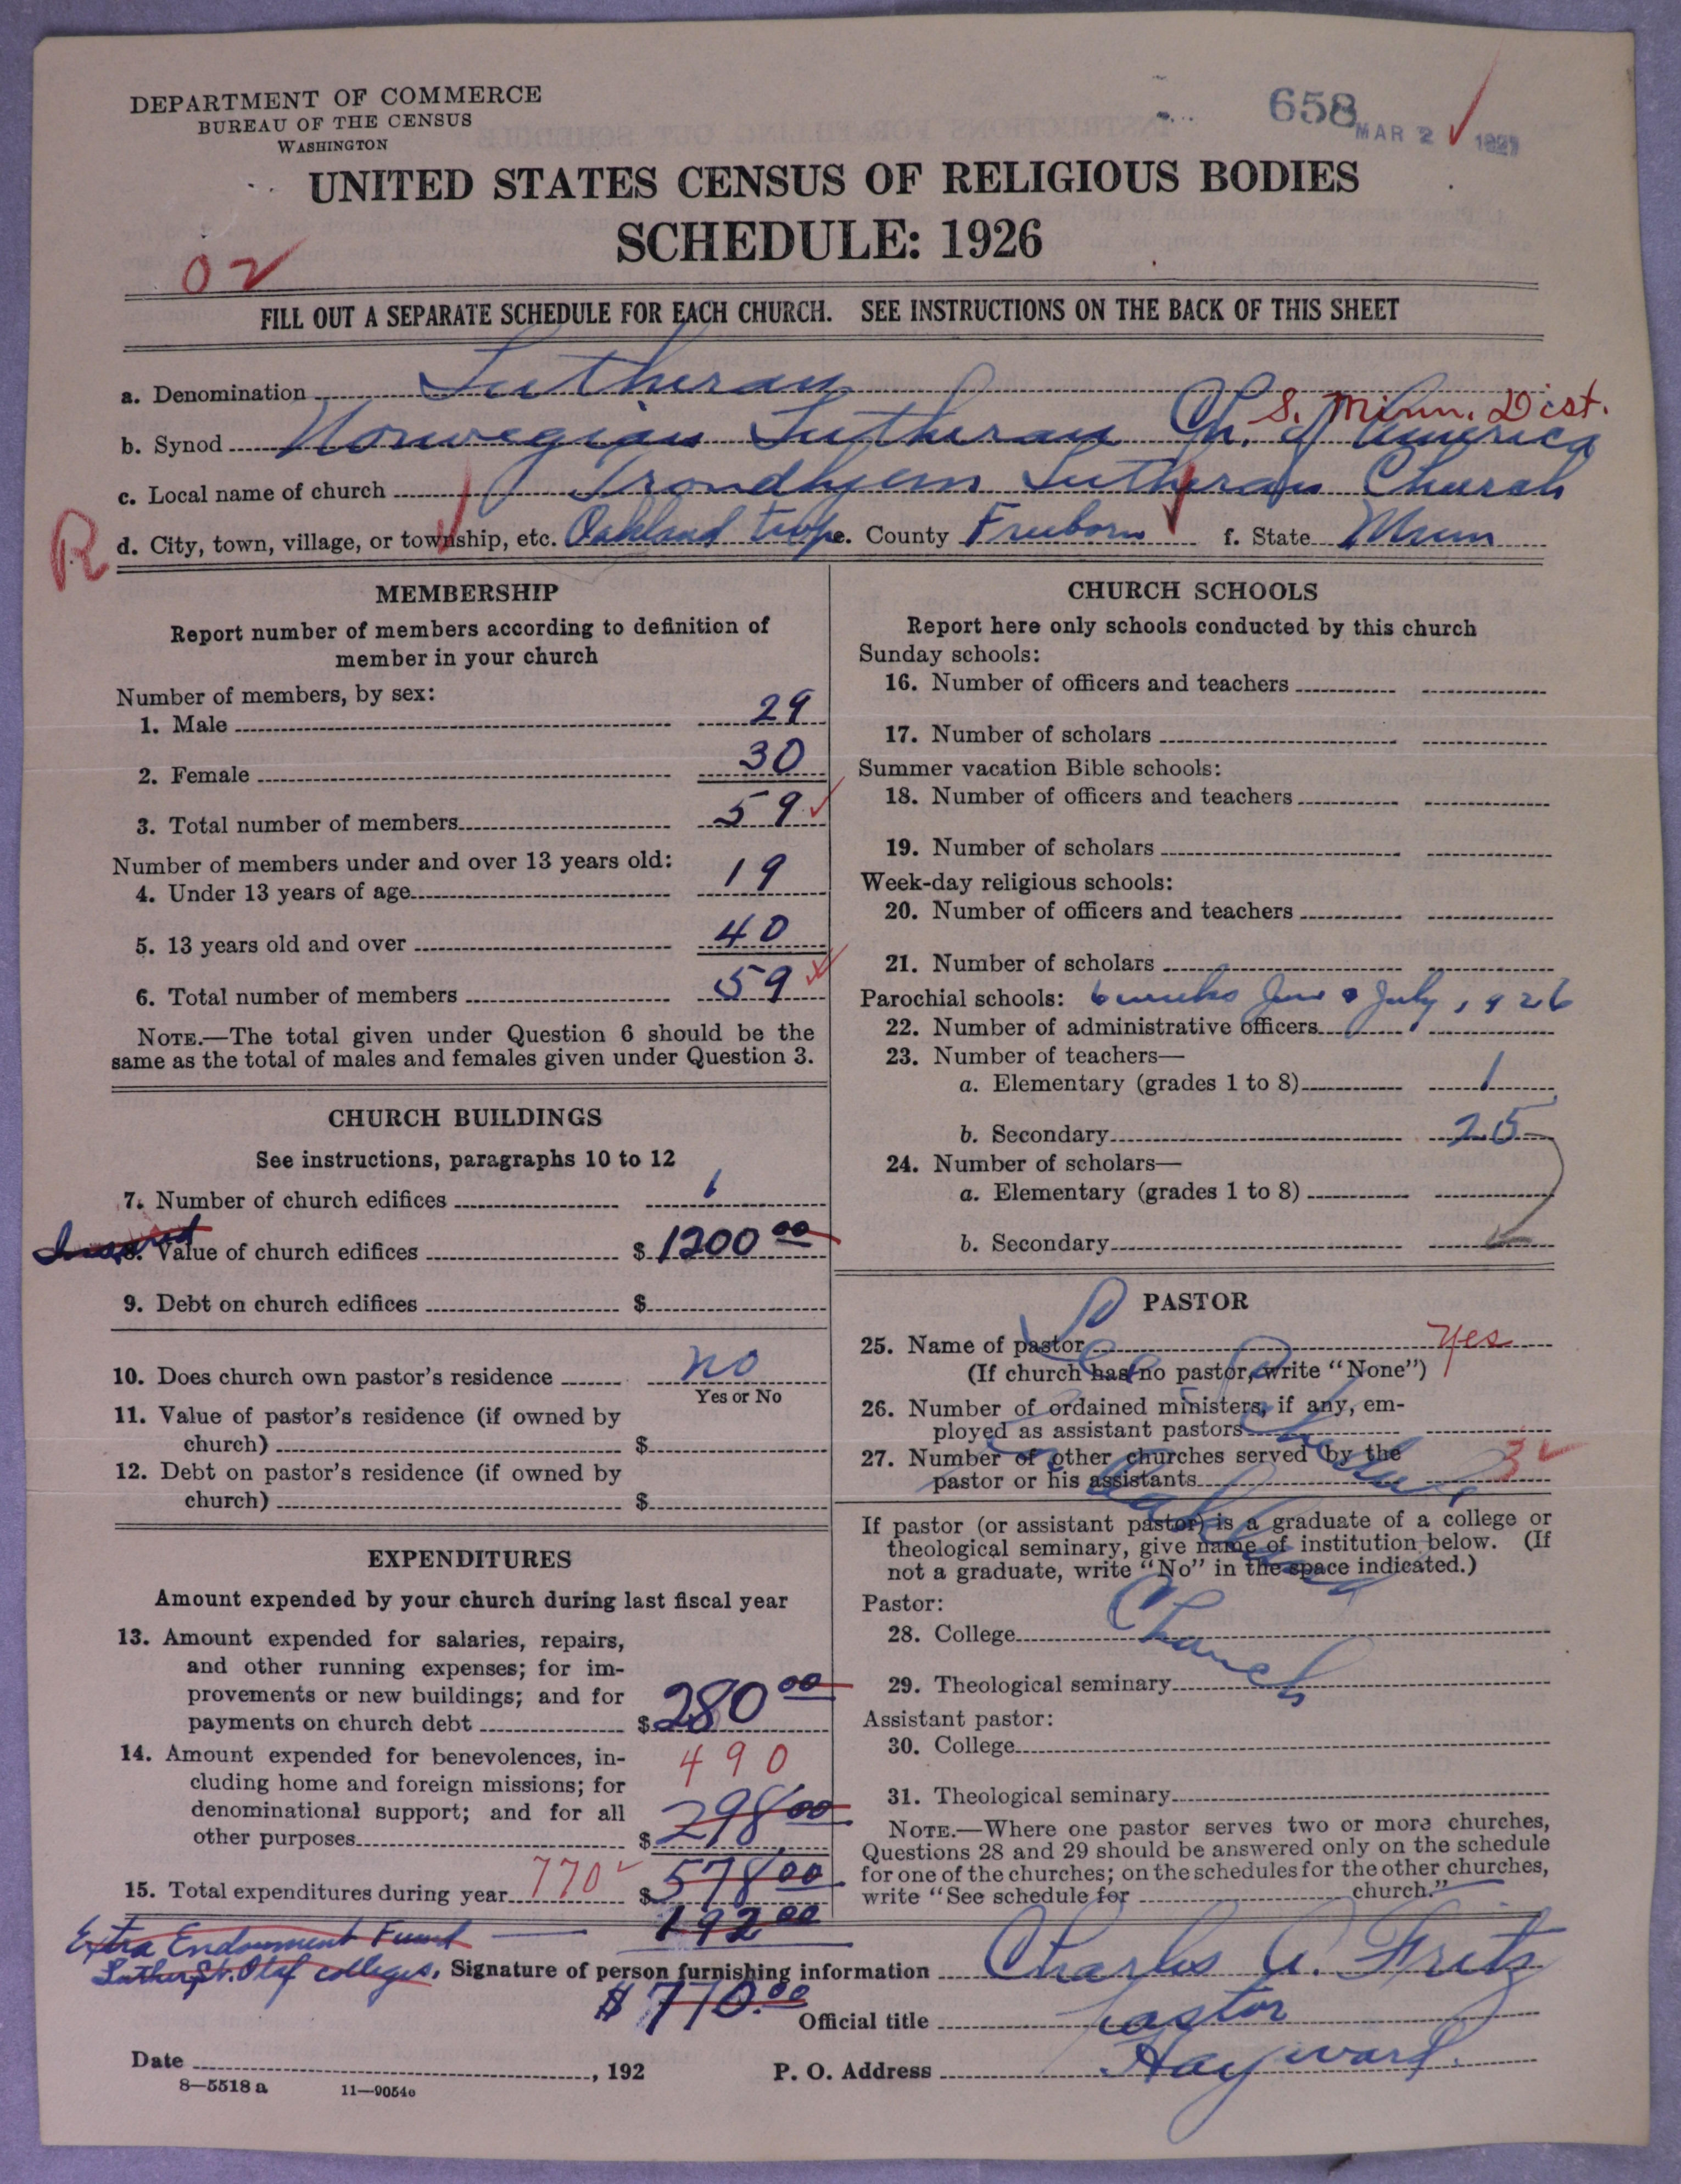 DEPARTMENT OF COMMERCE
BUREAU OF THE CENSUS
WASHINGTON
658
MAR 2 1927
UNITED STATES CENSUS OF RELIGIOUS BODIES
SCHEDULE: 1926
02
FILL OUT A SEPARATE SCHEDULE FOR EACH CHURCH. SEE INSTRUCTIONS ON THE BACK OF THIS SHEET
a. Denomination Lutheran
S. Minn. Dist.
b. Synod Norwegian Lutheran Ch. of America
c. Local name of church Trondhjem Lutheran Church
R
d. City, town, village, or township, etc. Oakland twp e. County Freeborn f. State Minn
MEMBERSHIP
Report number of members according to definition of
member in your church
Number of members, by sex:
1. Male 29
2. Female 30
3. Total number of members 59
Number of members under and over 13 years old:
4. Under 13 years of age 19
5. 13 years old and over 40
6. Total number of members 59
NOTE.—The total given under Question 6 should be the
same as the total of males and females given under Question 3.
CHURCH BUILDINGS
See instructions, paragraphs 10 to 12
7. Number of church edifices 1
8. Value of church edifices $ 1200 00
9. Debt on church edifices $
10. Does church own pastor's residence no
Yes or No
11. Value of pastor's residence (if owned by
church) $
12. Debt on pastor's residence (if owned by
church) $
EXPENDITURES
Amount expended by your church during last fiscal year
13. Amount expended for salaries, repairs,
and other running expenses; for im-
provements or new buildings; and for
payments on church debt $ 280 00
14. Amount expended for benevolences, in-
cluding home and foreign missions; for
denominational support; and for all
other purposes $ 298 00
490
15. Total expenditures during year 770 $ 578 00
Extra Endowment Fund — 192 00
Luther, St. Olaf colleges.
$ 770.00
CHURCH SCHOOLS
Report here only schools conducted by this church
Sunday schools:
16. Number of officers and teachers
17. Number of scholars
Summer vacation Bible schools:
18. Number of officers and teachers
19. Number of scholars
Week-day religious schools:
20. Number of officers and teachers
21. Number of scholars
Parochial schools: 6 weeks June & July, 1926
22. Number of administrative officers
23. Number of teachers—
a. Elementary (grades 1 to 8) 1
b. Secondary 25
24. Number of scholars—
a. Elementary (grades 1 to 8)
b. Secondary
PASTOR
25. Name of pastor yes
(If church has no pastor, write "None")
26. Number of ordained ministers, if any, em-
ployed as assistant pastors
27. Number of other churches served by the
pastor or his assistants 3
If pastor (or assistant pastor) is a graduate of a college or
theological seminary, give name of institution below. (If
not a graduate, write "No" in the space indicated.)
See
Church
Pastor:
28. College
29. Theological seminary
Assistant pastor:
30. College
31. Theological seminary
NOTE.—Where one pastor serves two or more churches,
Questions 28 and 29 should be answered only on the schedule
for one of the churches; on the schedules for the other churches,
write "See schedule for church."
Signature of person furnishing information Charles A. Fritz
Official title Pastor
Date , 192
P. O. Address Hayward.
8—5518 a 11—9054e